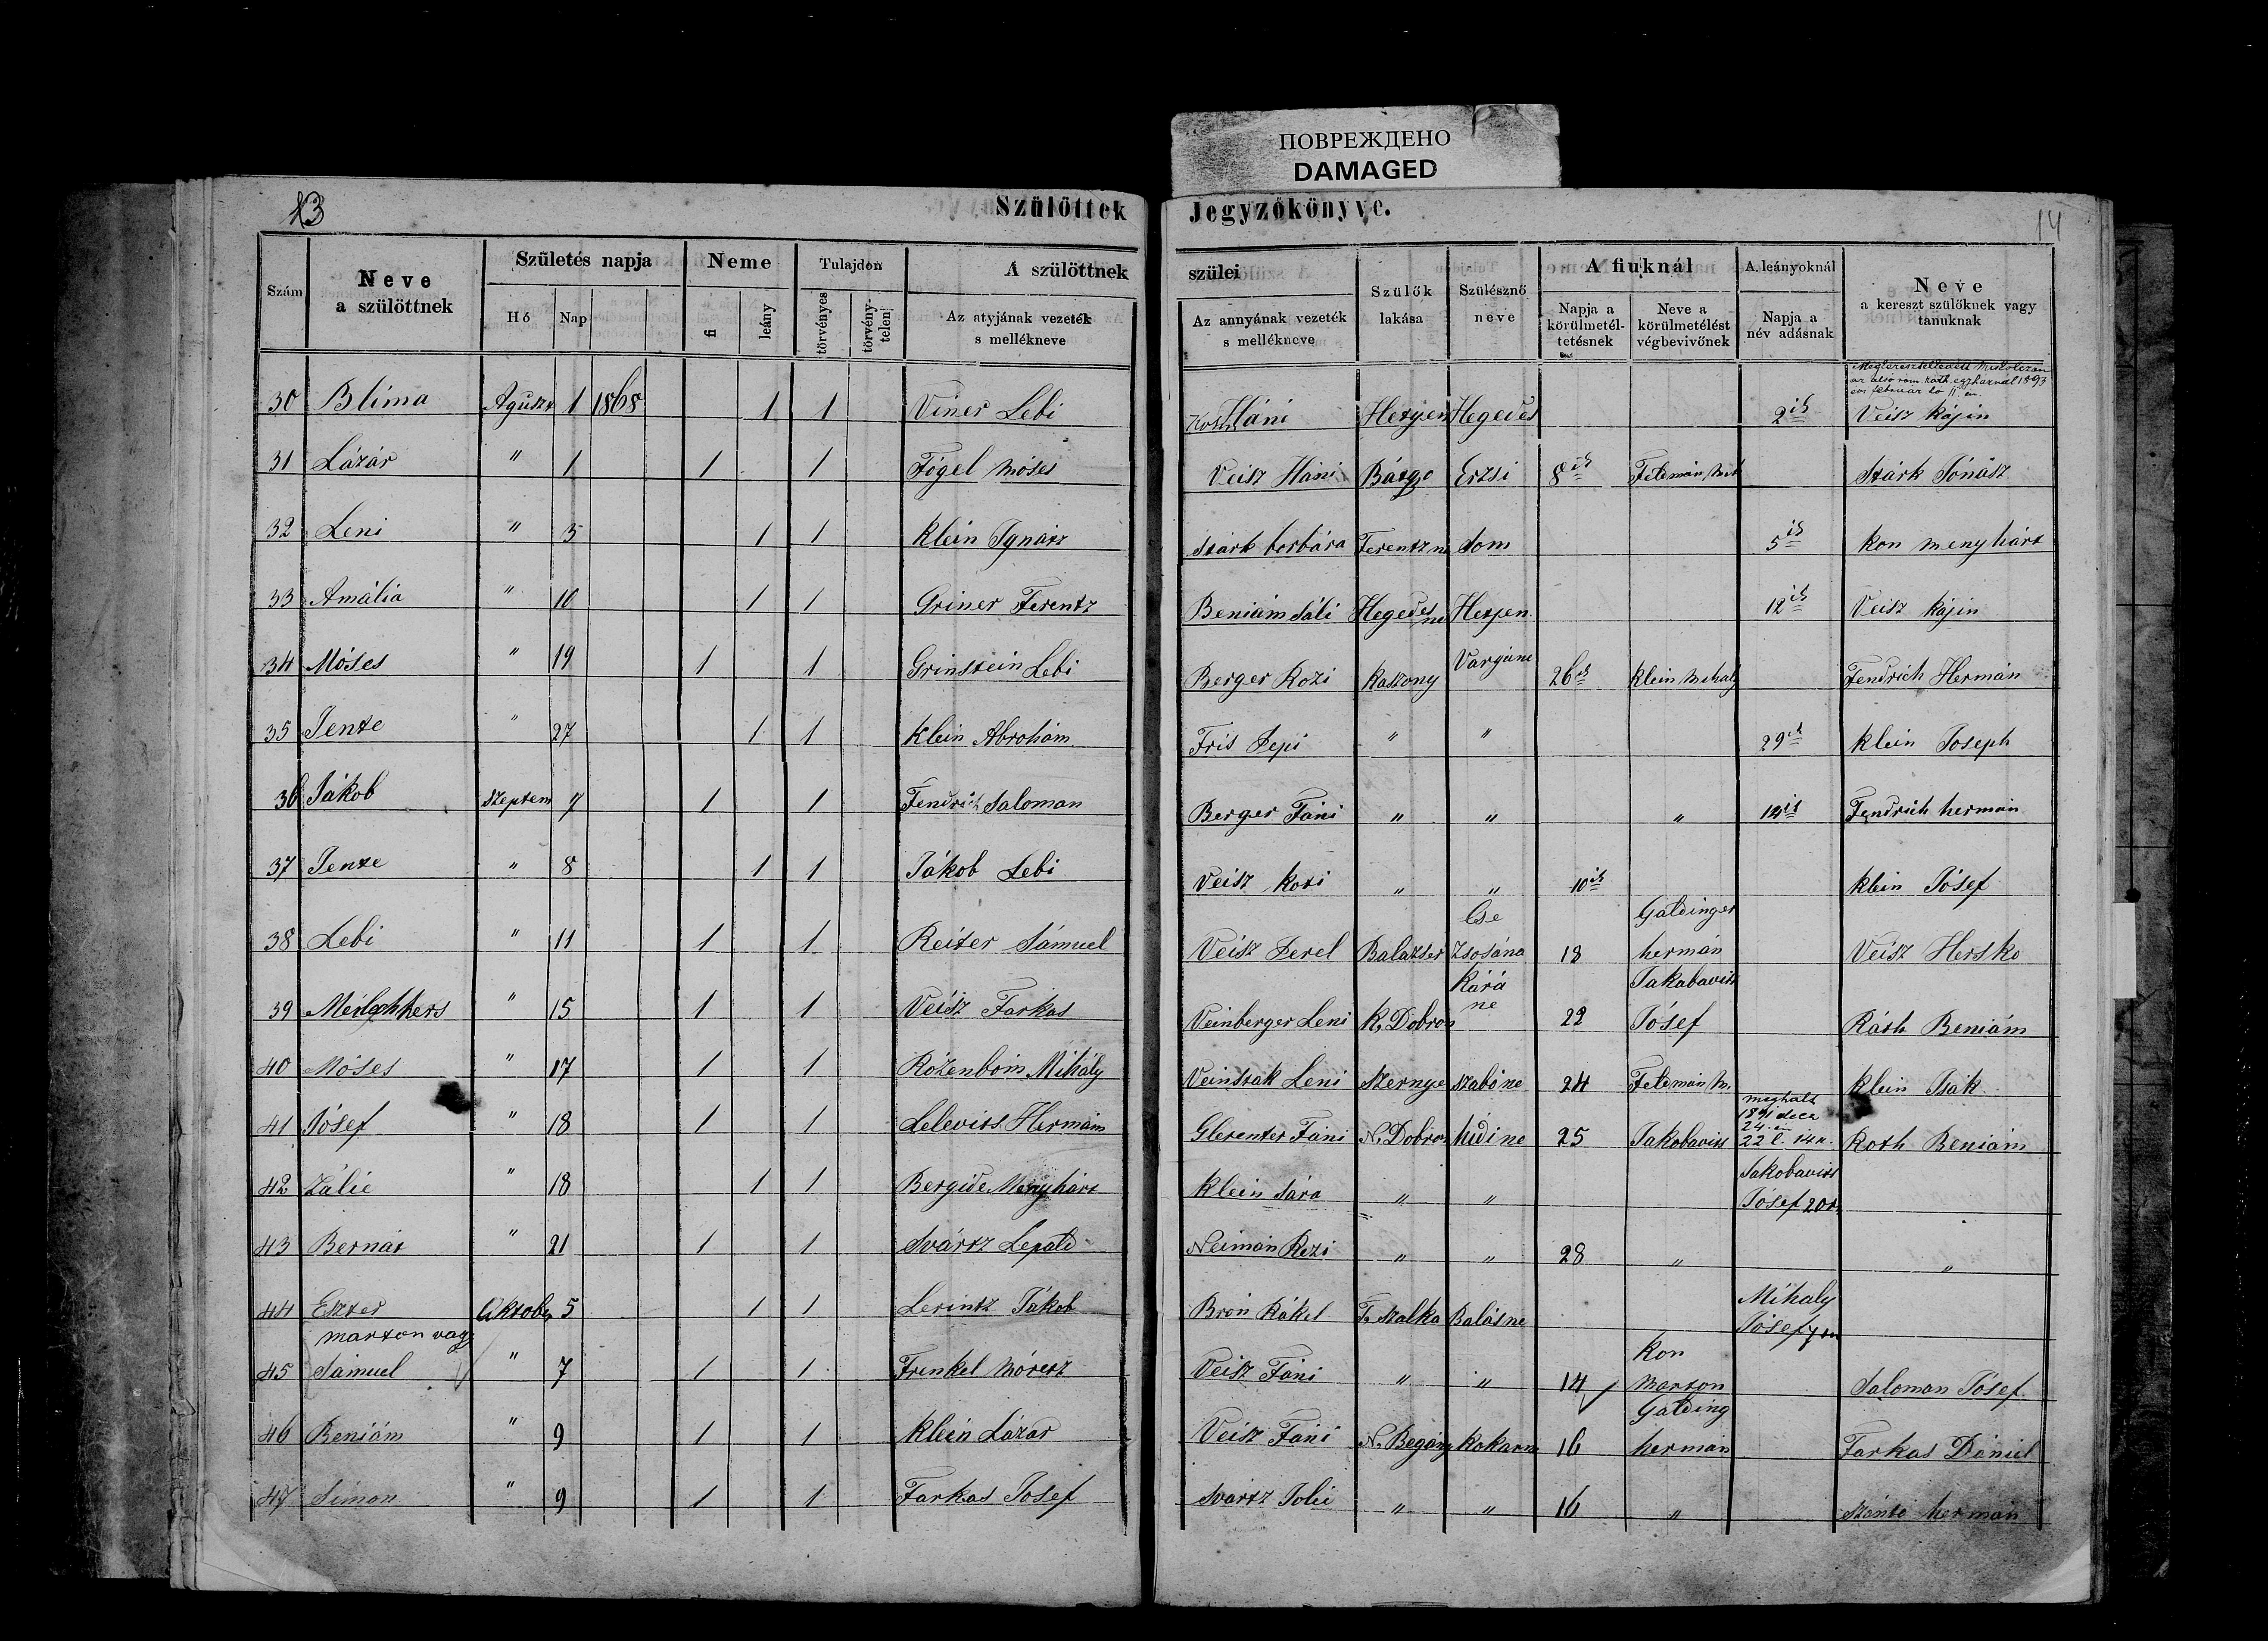 ПОВРЕЖДЕНО
DAMAGED
13 Szülöttek Jegyzőkönyve. 14
Szám Neve a szülöttnek Születés napja Hó Nap Neme fi leány Tulajdon törvényes törvénytelen A szülöttnek szülei Az atyjának vezeték s mellékneve Az annyának vezeték s mellékneve Szülők lakása Szülésznő neve A fiuknál Napja a körülmetéltetésnek Neve a körülmetélést végbevivőnek A leányoknál Napja a név adásnak Neve a kereszt szülőknek vagy tanuknak
30 Blima Aguszt 1 1868 1 1 Viner Lebi Háni Hetyen Hegedes 2ik Veisz Kájin
31 Lázár " 1 1 1 Fógel Móses Veisz Háni Bátyo Erzsi 8ik Felemán Mih Stárk Jónász
32 Leni " 5 1 1 Klein Ignátz Stárk borbára Ferentz ne Som 5ik Kon menyhárt
33 Amália " 10 1 1 Griner Ferentz Beniám Sáli Hegedes ne Hetyen 12ik Veisz kájin
34 Móses " 19 1 1 Grinstein Lebi Berger Rozi Kaszony Vargáne 26ik Klein Mihaly Fendrich Hermán
35 Jente " 27 1 1 Klein Abrohám Fris Pepi " " 29ik Klein Joseph
36 Jákob Szeptem 7 1 1 Fendrich Saloman Berger Fáni " " " 14ik Fendrich hermán
37 Jente " 8 1 1 Jákob Lebi Veisz Rozi " " 10ik Klein Jósef
38 Lebi " 11 1 1 Reiter Sámuel Veisz Perel Balazser Cse Zsosána 18 Galdinger hermán Veisz Hersko
39 " 15 1 1 Veisz Farkas Veinberger Leni K. Dobron Kárá ne 22 Jakabavits Jósef Ráth Beniám
40 Móses " 17 1 1 Rózenboim Mihály Veinstak Leni Szernye szabó ne 24 Felemán M. Klein Isák
41 Jósef " 18 1 1 Lelevits Hermám Glerenter Fáni N. Dobron hidi ne 25 Jakobavits meghalt 1891 decz 24.én Roth Beniám
42 Zálie " 18 1 1 Bergide Menyhárt Klein Sára " " Jakobavits Jósef 20
43 Bernát " 21 1 1 Svártz Lepold Neimán Rezi " " 28 " "
44 Eszter Aktober 5 1 1 Lerintz Jákob Bron Rákel T. Szalka Balás ne Mihaly Jósef 7
45 marton vagy Sámuel " 7 1 1 Frenkel Móretz Veisz Fáni " " 14 Kon Marton Saloman Jósef
46 Beniám " 9 1 1 Klein Lázár Veisz Fáni N. Begány Kokarn 16 Galding hermán Farkas Dániel
47 Simon " 9 1 1 Farkas Josef Svártz Jolei " " 16 " Szántó hermán